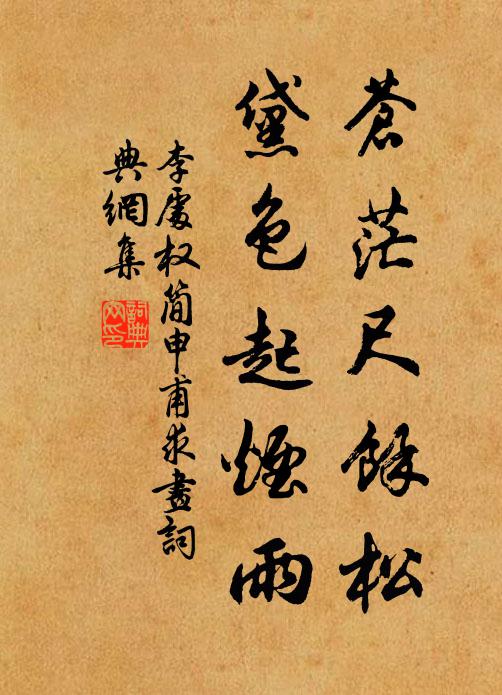 蒼茫尺餘松
黛色起煙雨
李處权简申甫求畫詞
典網集
詞典
网印